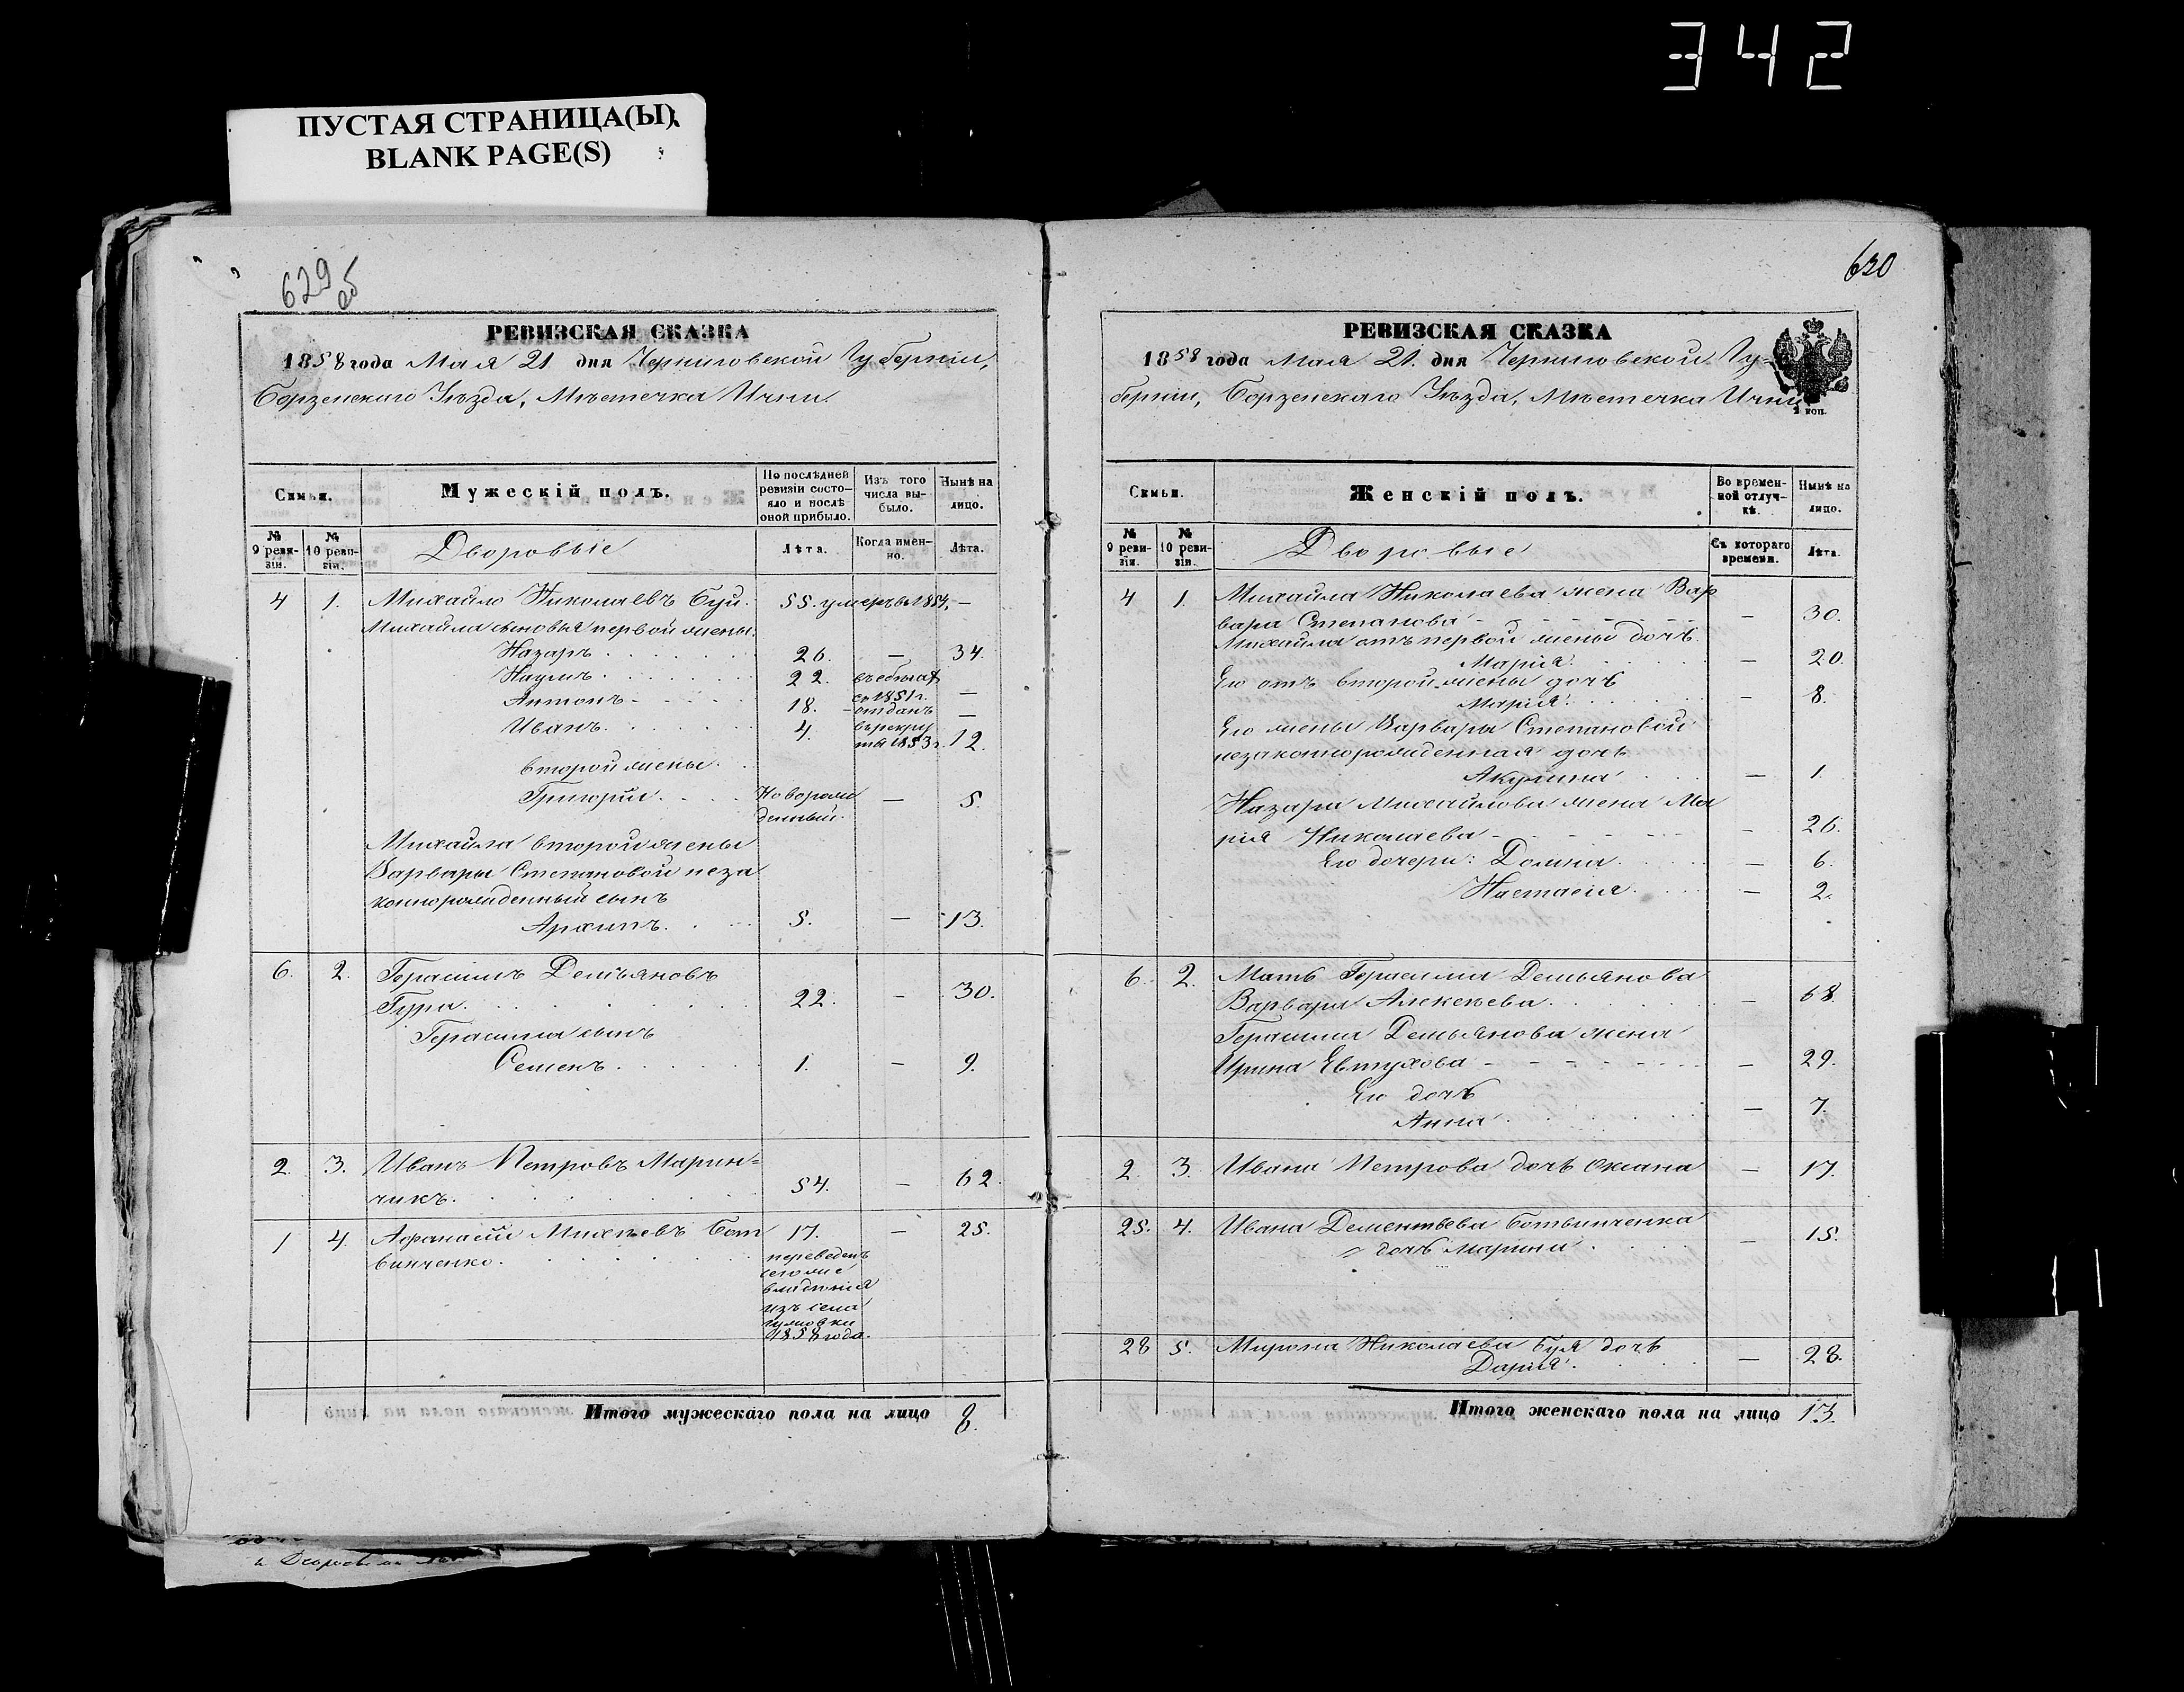 342
ПУСТАЯ СТРАНИЦА(Ы)
BLANK PAGE(S)
629 об
РЕВИЗСКАЯ СКАЗКА
1858 года Мая 21 дня Черниговской Губерніи,
Борзенскаго Уѣзда, Мѣстечка Ични
Семьи. Мужескій полъ. По послѣдней ревизіи состояло и послѣ оной прибыло. Изъ того числа выбыло. Нынѣ на лицо.
№ 9 ревизіи. № 10 ревизіи. Дворовые Лѣта. Когда именно. Лѣта.
4 1. Михайло Николаевъ Буй. 55. умеръ в 1854. –
Михайла сыновья первой жены:
Назаръ 26. – 34.
Наумъ 22. въ бѣгах с 1851 г. –
Антонъ 18. отданъ в рекруты 1853 г. –
Иванъ 4. 12.
второй жены
Григорій Новорожденный. – 5.
Михайла второй жены
Варвары Степановой неза
коннорожденный сынъ
Архипъ 5. – 13.
6. 2. Герасимъ Демьяновъ
Гура 22. – 30.
Герасима сынъ
Семенъ 1. – 9.
2. 3. Иванъ Петровъ Марин=
чикъ 54. – 62.
1 4. Афанасій Михѣевъ Бот 17. – 25.
винченко.
переведенъ
сего же
владѣнія
изъ села
1858 года.
Итого мужескаго пола на лицо 8.
630
РЕВИЗСКАЯ СКАЗКА
1858 года Мая 21. дня Черниговской Гу-
берніи, Борзенскаго Уѣзда, Мѣстечка Ични
2 коп.
Семьи. Женскій полъ. Во временной отлучкѣ. Нынѣ на лицо.
№ 9 ревизіи. № 10 ревизіи. Дворовые Съ котораго времени. Лѣта.
4 1. Михайла Николаева жена Вар
вара Степанова – 30.
Михайла отъ первой жены дочь
Марія – 20.
Его отъ второй жены дочь
Марія – 8.
Его жены Варвары Степановой
незаконнорожденная дочь
Акулина – 1.
Назара Михайлова жена Ма
рія Николаева – 26.
Его дочери: Домна – 6.
Настасія – 2.
6. 2. Мать Герасима Демьянова
Варвара Алексѣева – 68.
Герасима Демьянова жена
Ирина Евтухова – 29.
Его дочь
Анна – 7.
2. 3. Ивана Петрова дочь Оксана – 17.
25. 4. Ивана Дементьева Ботвинченка
дочь Марина – 15.
28 5. Мирона Николаева Буя дочь
Дарія – 28.
Итого женскаго пола на лицо 13.